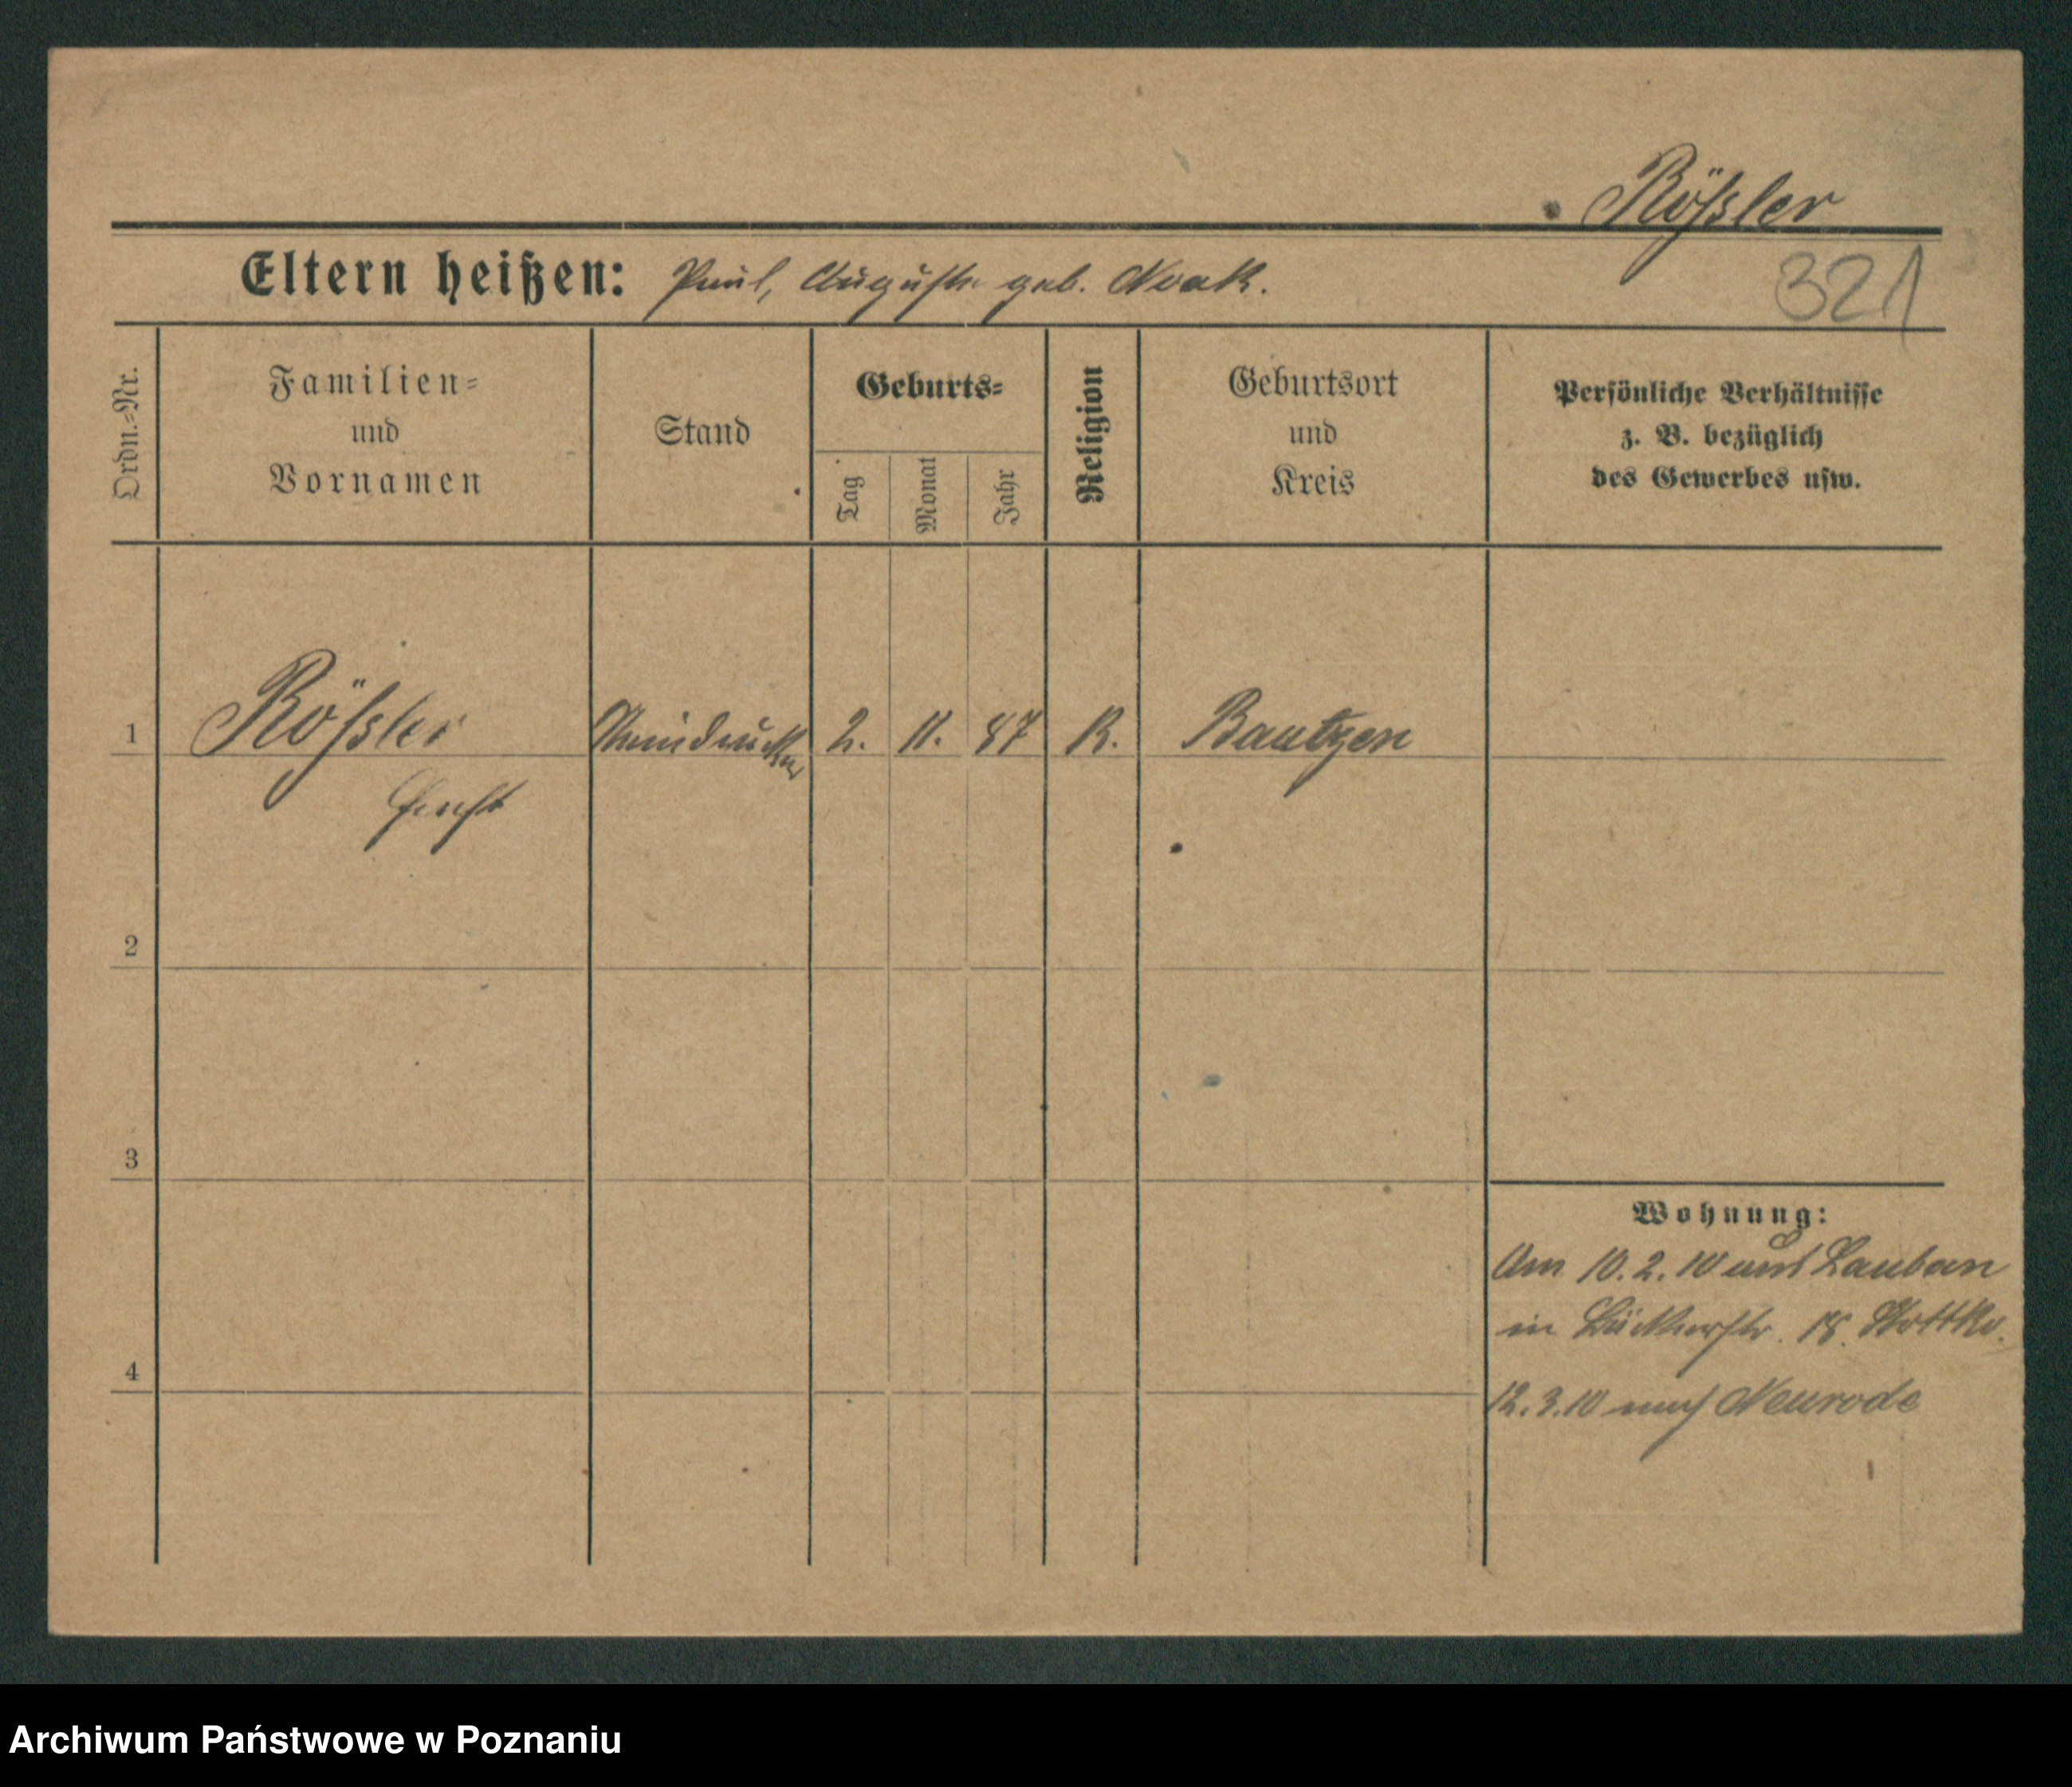 Rößler
Eltern heißen: Paul, Auguste geb. Noak.
321
Ordn.=Nr.
Familien=
und
Vornamen
Stand
Geburts=
Tag
Monat
Jahr
Religion
Geburtsort
und
Kreis
Persönliche Verhältnisse
z. B. bezüglich
des Gewerbes usw.
1 Rößler Steindrucker 2. 11. 87 K. Bautzen
Ernst
2
3
4
Wohnung:
Am 10.2.10 aus Lauban
in Bäckerstr. 18.
12.3.10 nach Neurode
Archiwum Państwowe w Poznaniu